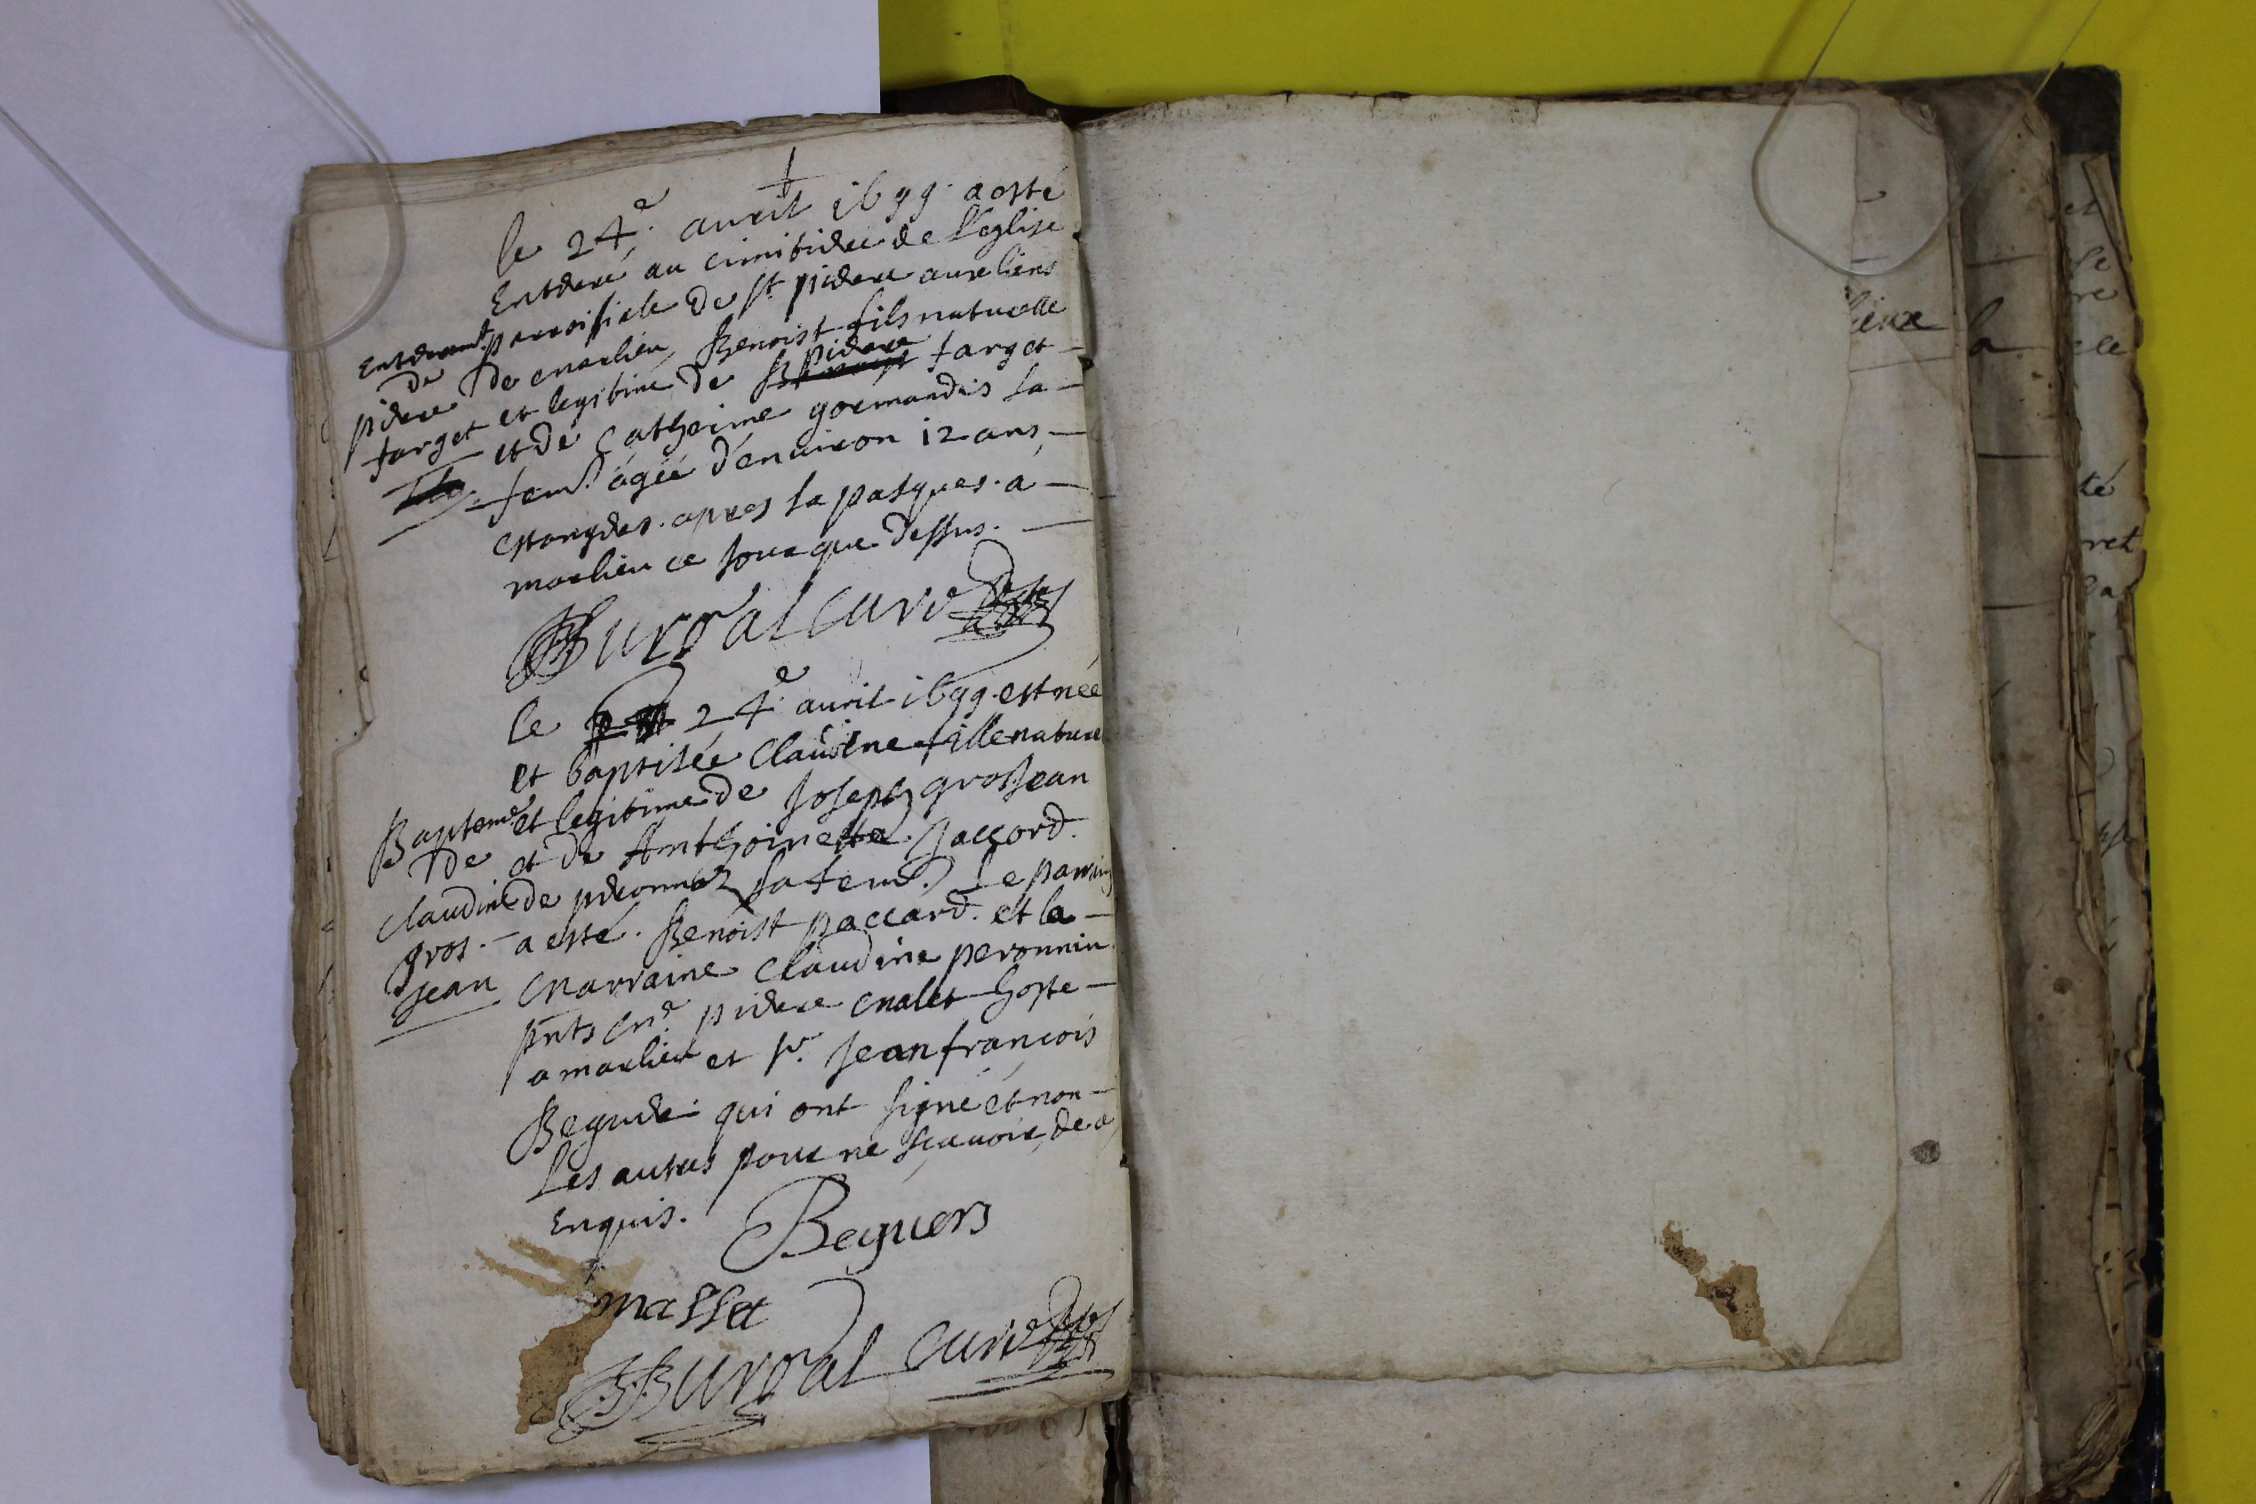 le 24e. avril 1699. a esté
Enterré au cimitiere de l'eglise
parroissiale de St pierre aux liens
de marlieu, Benoist fils naturelle
et legitime de pierre target
et de Catherine gormandis sa
fem. agée d'enuiron 12 ans
apres la pasques. a
marlieu ce Jour que dessus.
Enterremt.
de
pierre
target
Burdal curé
le 24e. auril 1699. est née
et baptisée Claudine fille naturel
et legitime de Joseph grosJean
et de Anthoinette Jaccord.
sa fem. Le parrain
a esté. Benoist paccard. et la
marraine Claudine peronnin
pnts me. pierre malet hoste
a marlieu et sr. Jean francois
Begude. qui ont signé et non
Les autres pour ne sçauoir, de ce
Enquis.
Bapteme
de
claudine
gros.
Jean
Beguers
masset
Burdal curé
lieux